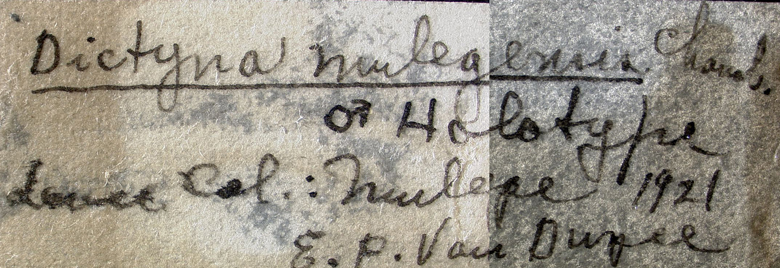 Dictyna mulegensis Chamb.
♂ Holotype
Lower Cal.: Mulege 1921
E. P. Van Duzee